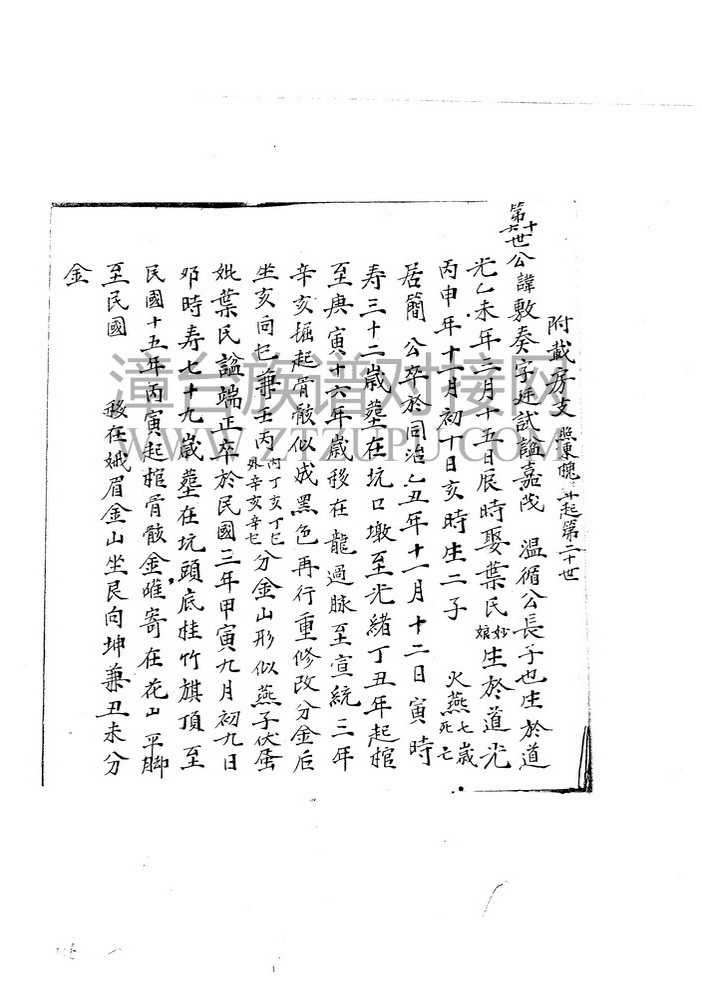 附載房支 照東 起第二十世
第十六世公諱敷奏字廷試諡嘉茂 溫循公長子也生於道
光乙未年二月十五日辰時娶葉氏妙娘生於道光
丙申年十一月初十日亥時生二子 火燕七歲死亡
居簡 公卒於同治乙丑年十一月十二日寅時
寿三十二歲墓在坑口墩至光緒丁丑年起棺
至庚寅十六年歲移在龍過脉至宣統三年
辛亥掘起骨骸似成黑色再行重修改分金后
坐亥向巳兼壬丙內丁亥丁巳外辛亥辛巳分金山形似燕子伏蛋
妣葉氏諡端正卒於民國三年甲寅九月初九日
卯時寿七十九歲墓在坑頭底桂竹旗頂至
民國十五年丙寅起棺骨骸金唯寄在花山平脚
至民國 移在娥眉金山坐艮向坤兼丑未分
金
漳台族谱对接网
WWW.ZTZUPU.COM